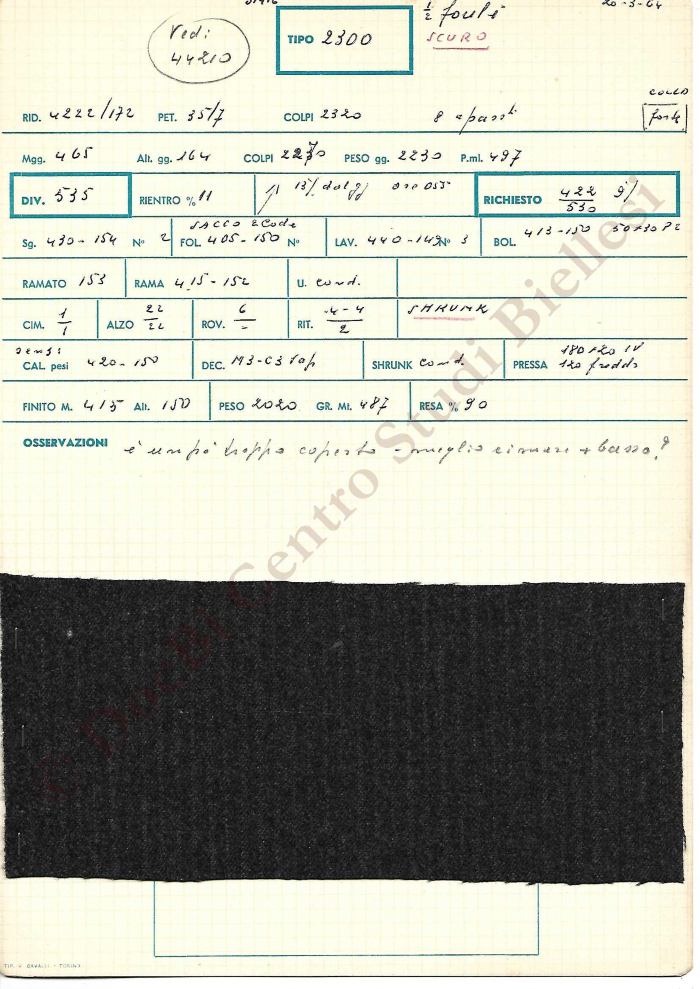 ½ foulé 20-3-64
Vedi 44210
TIPO 2300
SCURO
RID. 4222/172 PET. 35/7 COLPI 2320 8 COLLA forte
Mgg. 465 Alt. gg. 164 COLPI 2270 PESO gg. 2230 P.ml. 497
DIV. 535 RIENTRO % 11 13% dal gg ore 055 RICHIESTO 422/530 g/
SACCO 2 Code
Sg. 430-154 N° 2 FOL. 405-150 N° LAV. 440-149 N° 3 BOL. 413-150 50+30 P2
RAMATO 153 RAMA 415-152 U. cond.
CIM. 1/1 ALZO 22/22 ROV. 6/- RIT. 4-4/2 SHRUNK
sensi
CAL. pesi 420-150 DEC. M3-C3 Tap SHRUNK cond PRESSA 180+20 IV
120 freddo
FINITO M. 415 Alt. 150 PESO 2020 GR. Mt. 487 RESA % 90
OSSERVAZIONI è un pò troppo coperto - meglio cimare + basso?
© DocBi Centro Studi Biellesi
TIP. V. CAVALLI - TORINO